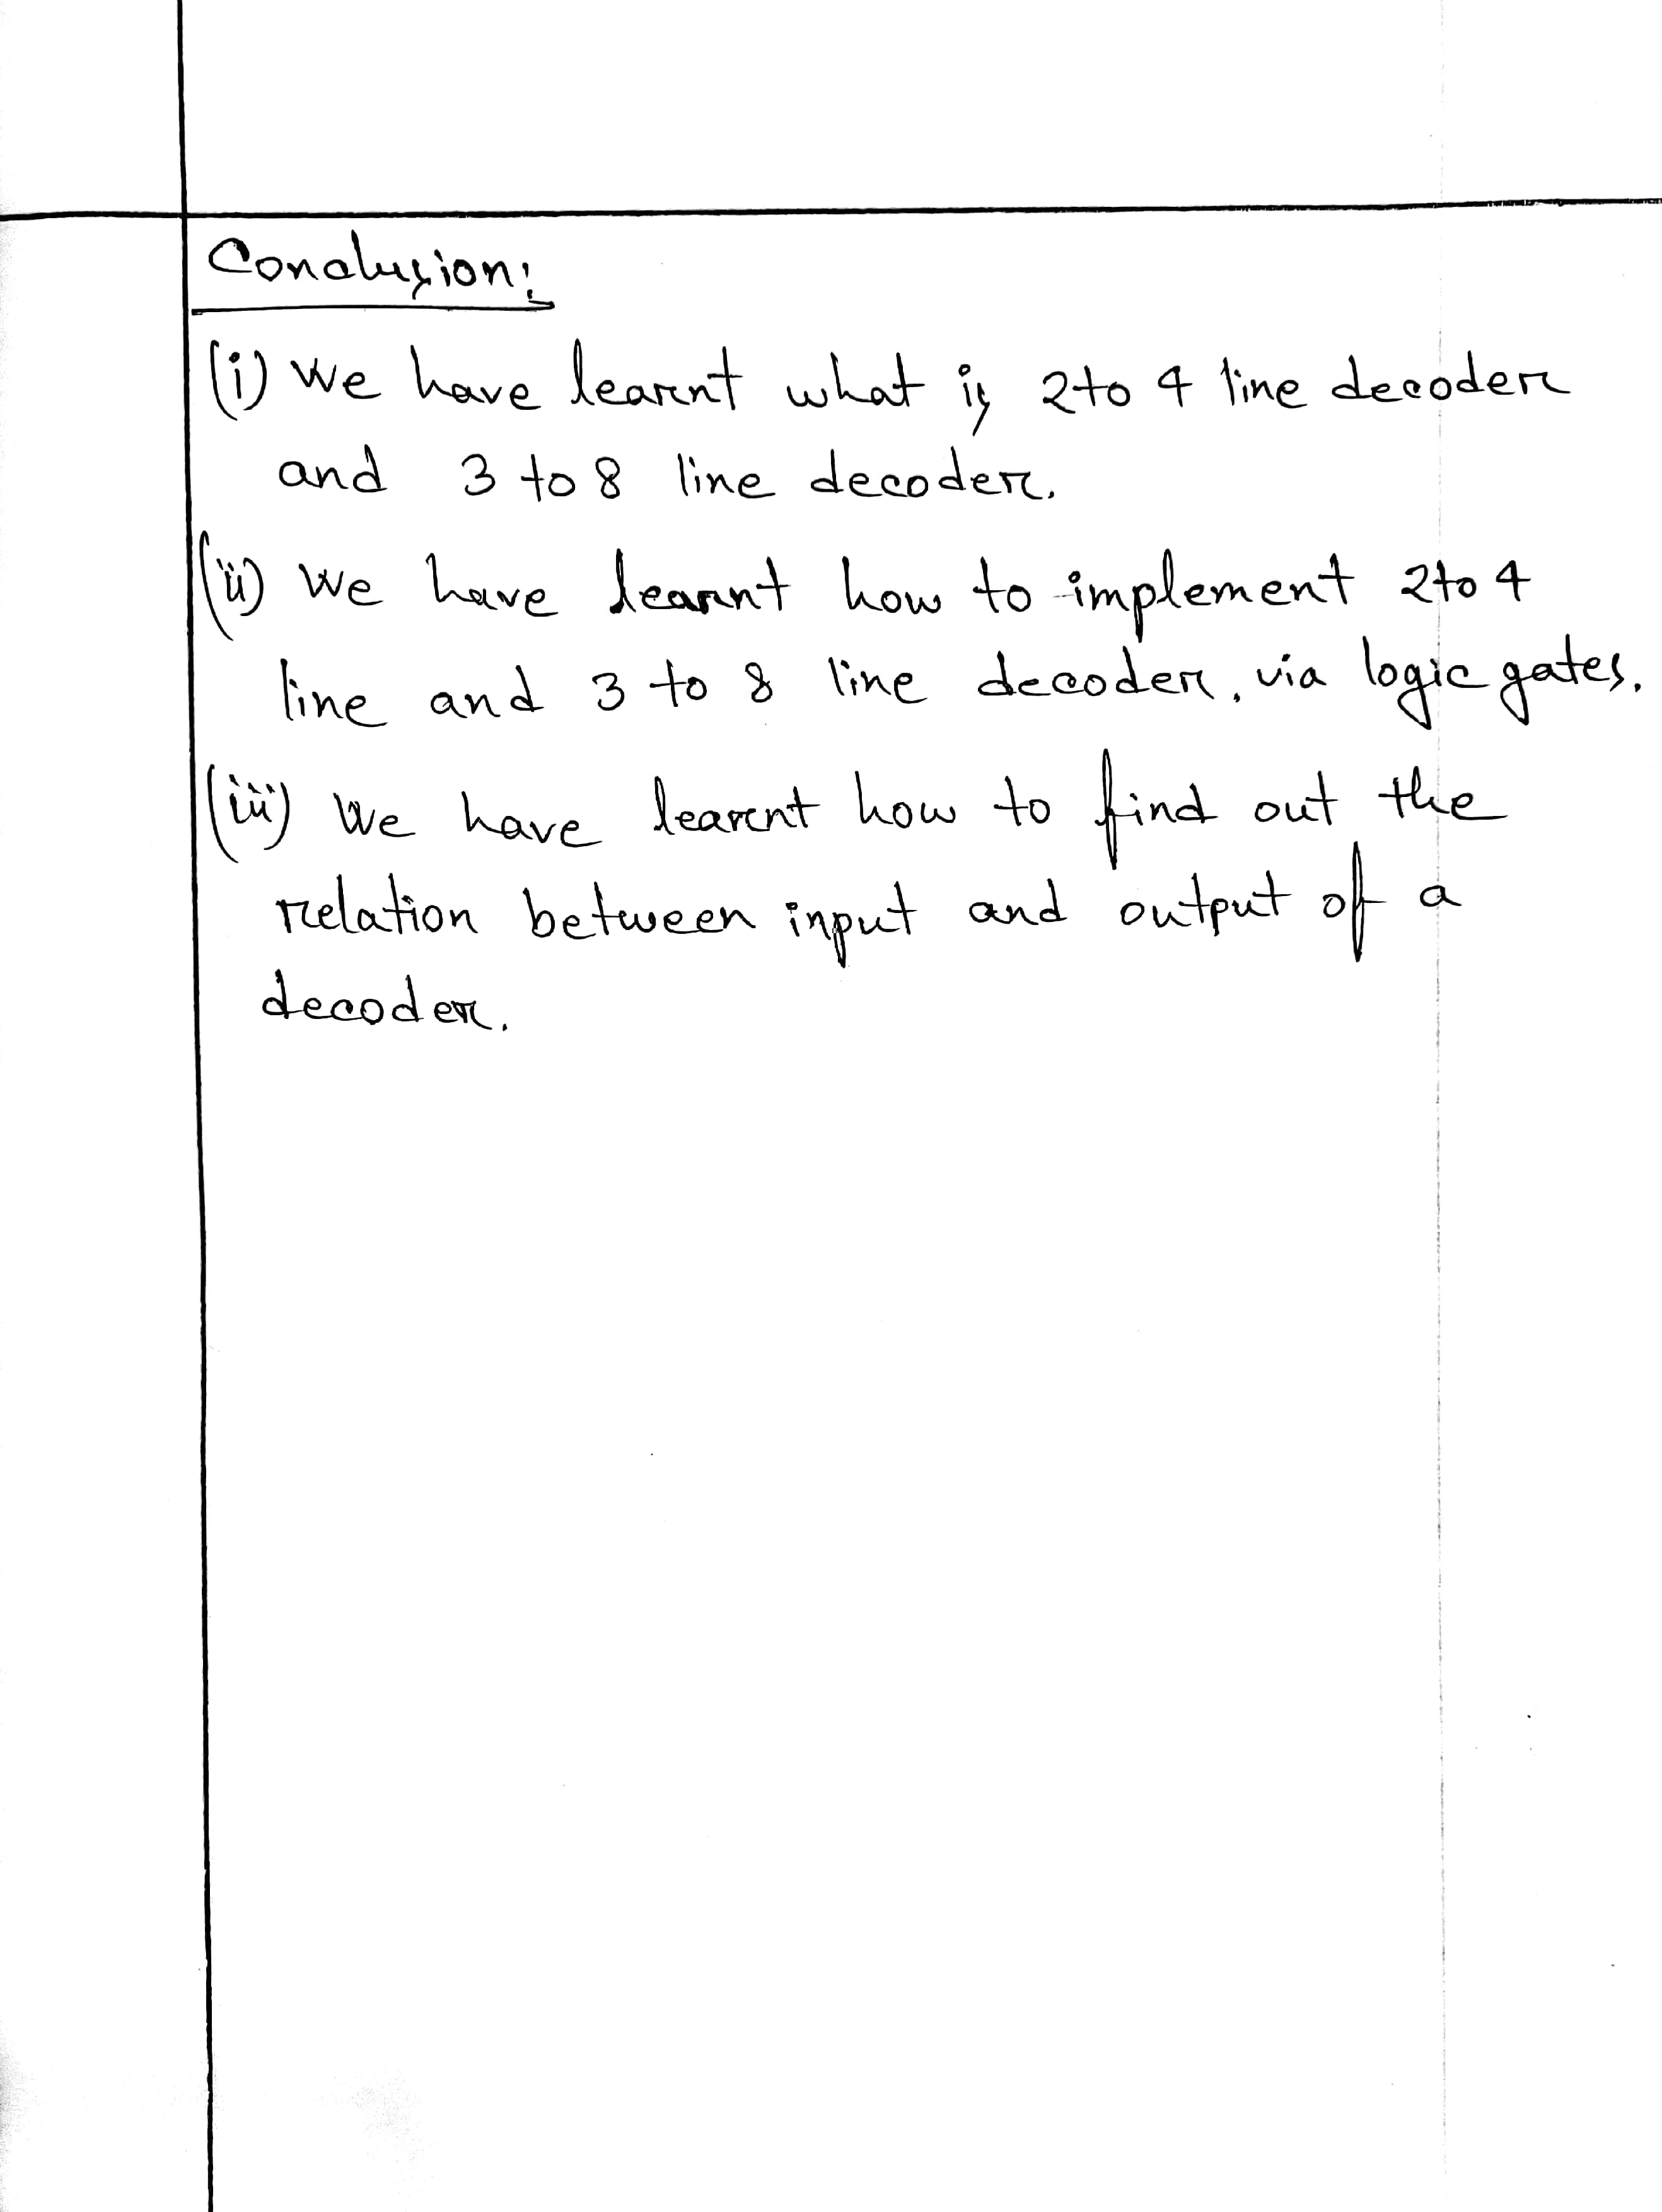 Conclusion:
(i) We have learnt what is 2 to 4 line decoder
and 3 to 8 line decoder.
(ii) We have learnt how to implement 2 to 4
line and 3 to 8 line decoder, via logic gates.
(iii) We have learnt how to find out the
relation between input and output of a
decoder.